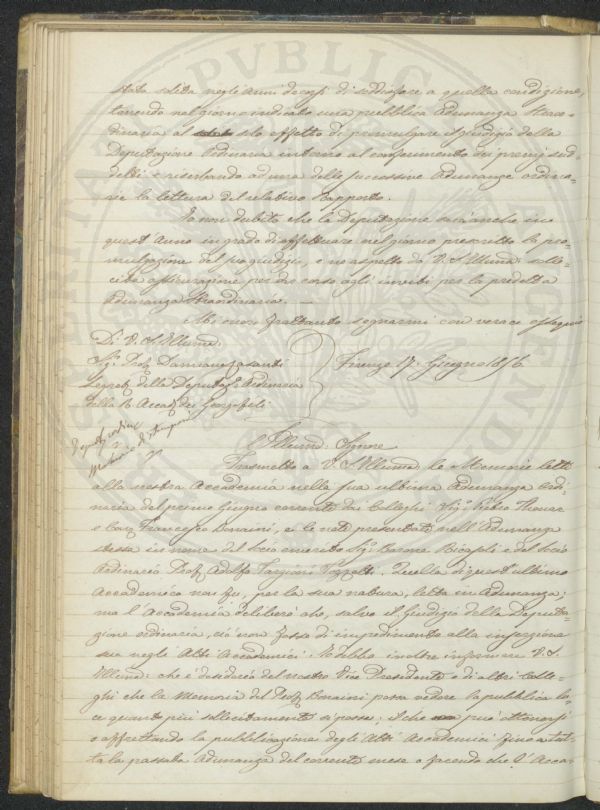 stata solita negli anni decorsi di soddisfare a quella condizione,
tenendo nel giorno indicato una pubblica Adunanza Straor-
dinaria al solo effetto di promulgare il giudizio della
Deputazione Ordinaria intorno al conferimento dei premj sud-
detti e riserbando ad una delle successive Adunanze ordina-
rie la lettura del relativo Rapporto.
Io non dubito che la Deputazione sarà anche in
quest'Anno in grado di effettuare nel giorno prescritto la pro-
mulgazione del suo giudizio, e ne aspetto da V. S. Illma solle-
cita assicurazione per dar corso agli inviti per la predetta
Adunanza Straordinaria.
Mi onoro frattanto segnarmi con verace ossequio
Di V. S. Illma
Sig. Prof. Damiano Casanti
Segret. della Deputaz. Ordinaria
della R. Accad. dei Georgofili
Firenze 17. Giugno 1856.
Memorie
Illmo Signore
Trasmetto a V. S. Illma le Memorie lette
alla nostra Accademia nella sua ultima Adunanza Ordi-
naria del primo Giugno corrente dai Colleghi Sig. Pietro Thouar
e Cav. Francesco Bonaini, e le note presentate nell'Adunanza
stessa in nome del Socio emerito Sig. Barone Ricasoli e del Socio
Ordinario Prof. Adolfo Targioni Tozzetti. Quella di quest'ultimo
Accademico non fu, per la sua natura, letta in Adunanza;
ma l'Accademia deliberò che, salvo il Giudizio della Deputa-
zione ordinaria, ciò non fosse di impedimento alla inserzione
sua negli Atti Accademici. Debbo inoltre informare V. S.
Illma che è desiderio del nostro Vice Presidente e di altri Colle-
ghi che la Memoria del Prof. Bonaini possa vedere la pubblica lu-
ce quanto più sollecitamente si possa; il che può ottenersi
o affrettando la pubblicazione degli Atti Accademici fino a tut-
ta la passata Adunanza del corrente mese o facendo che l'Acca-